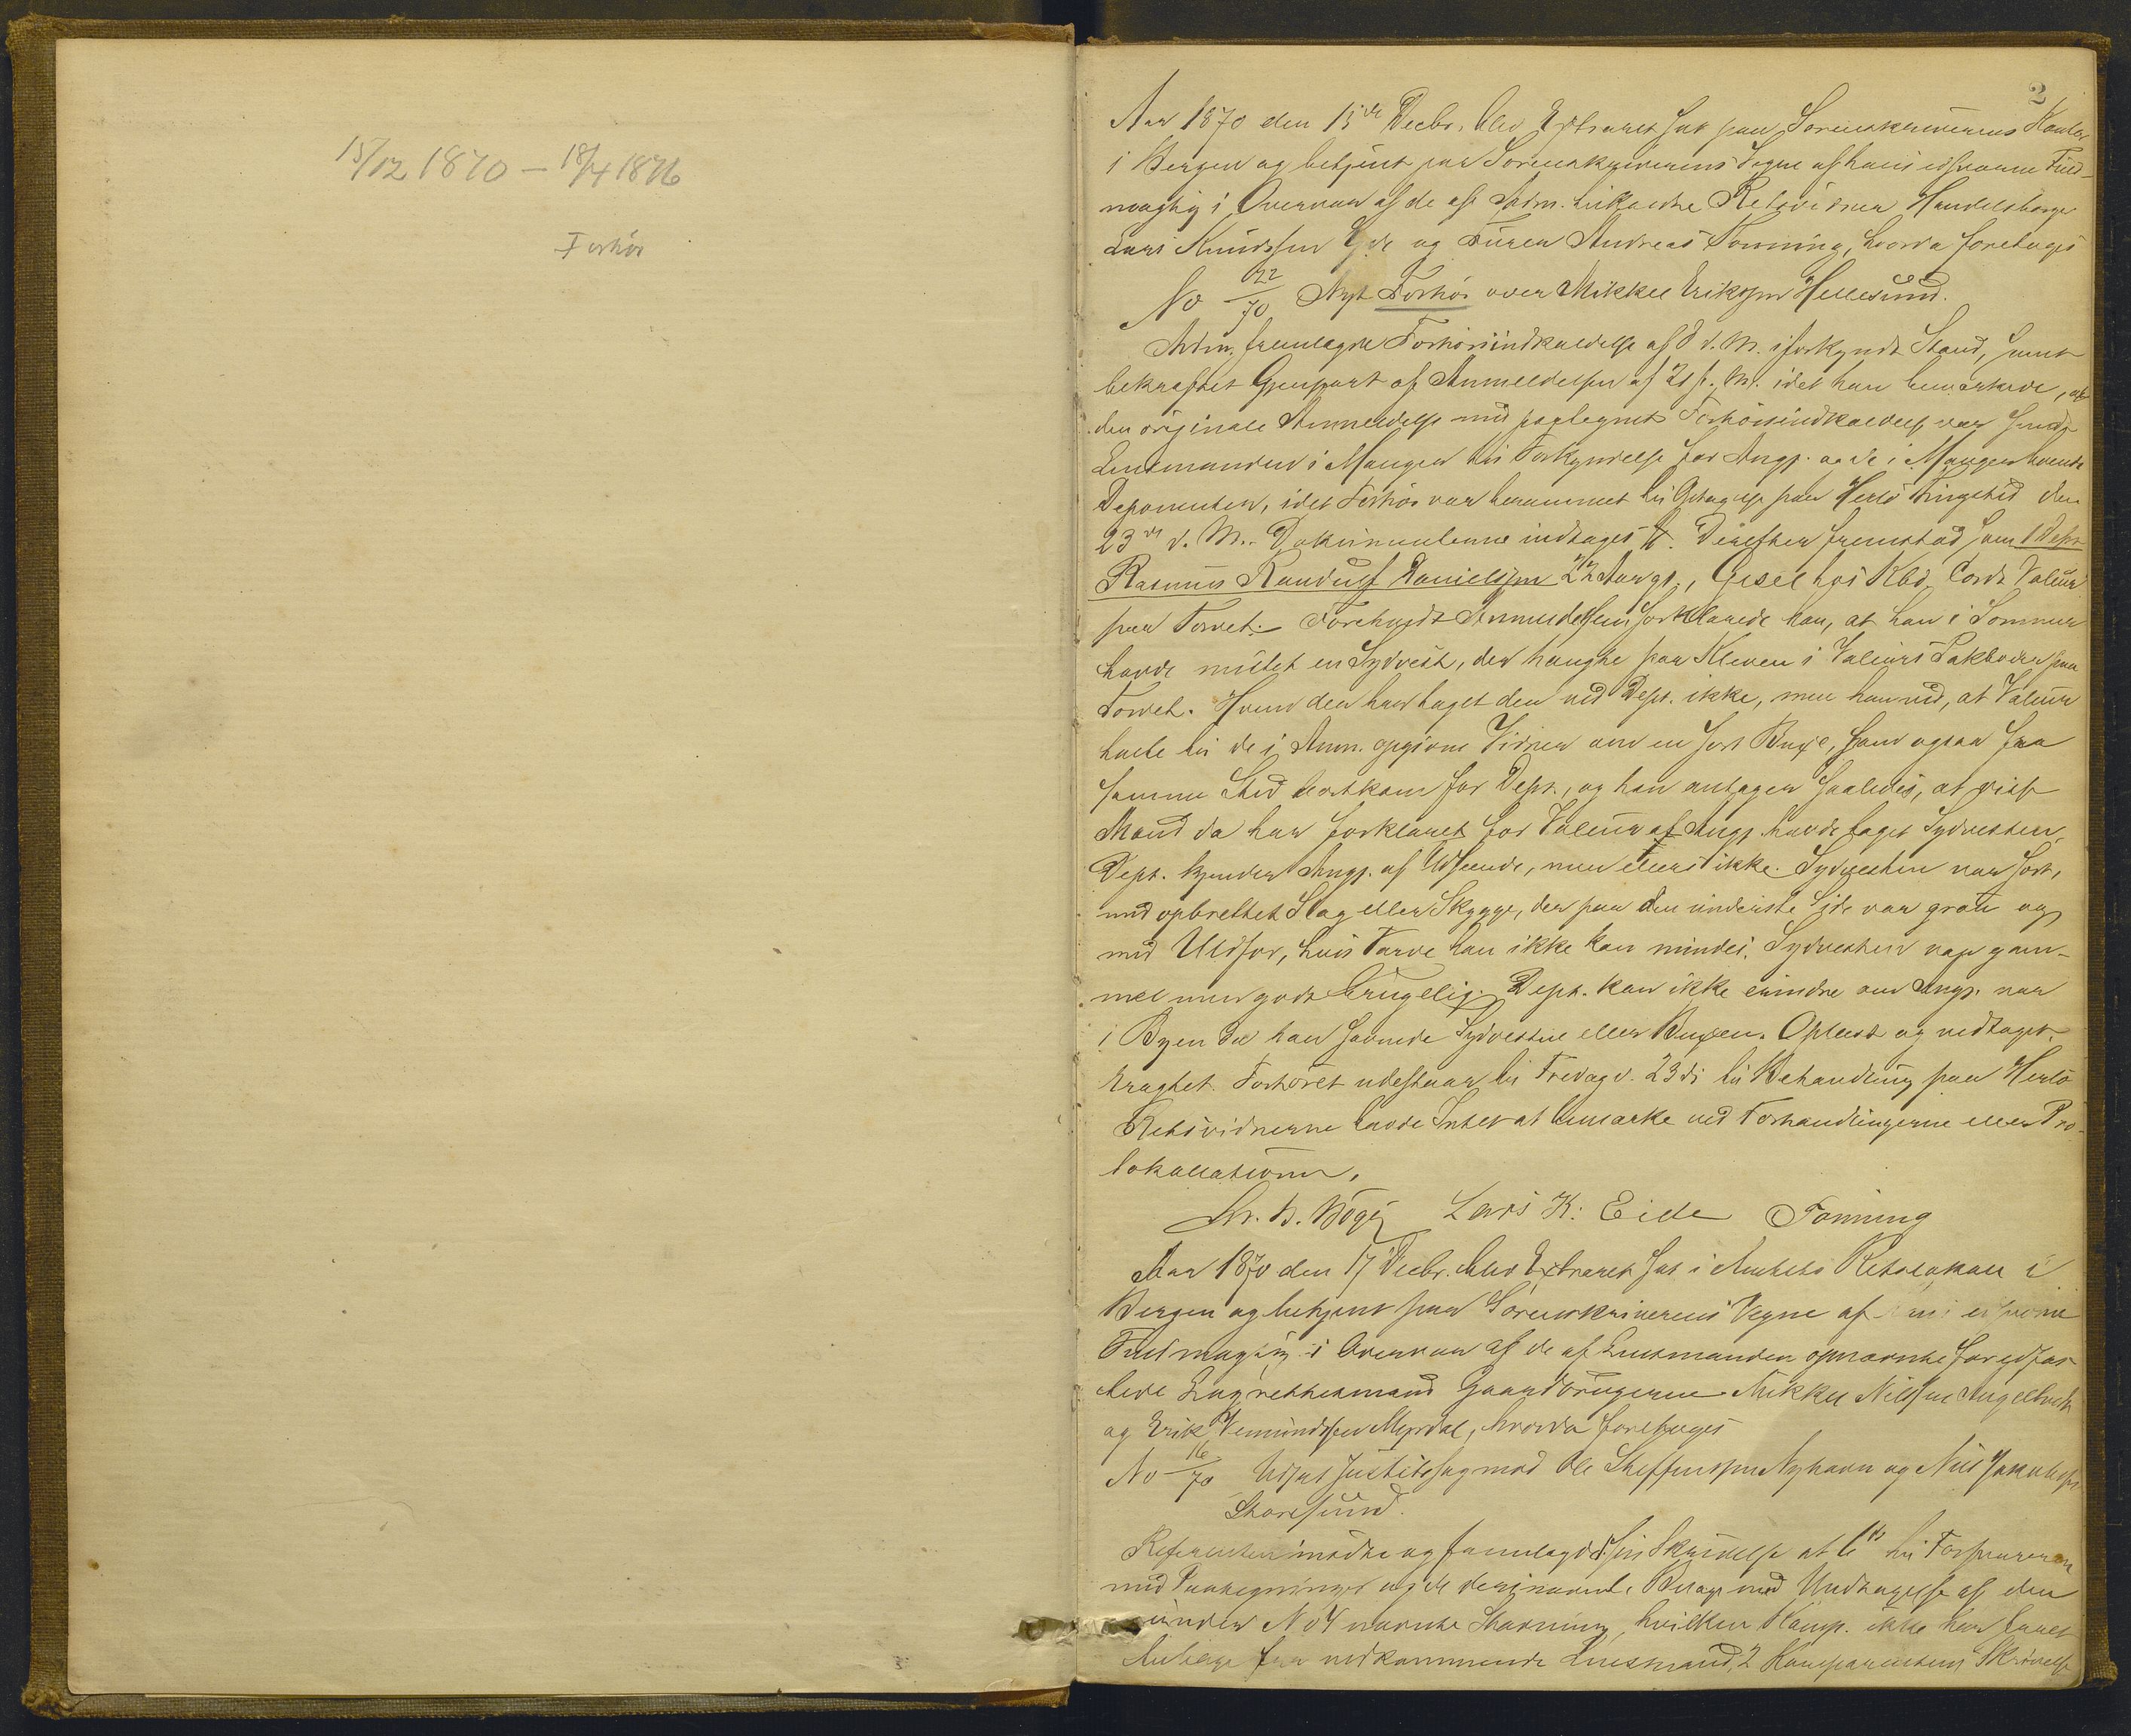 15/12 1870 – 18/4 1876
Forhör
2
Aar 1870 den 15de Decbr. blev Extraret sat paa Sorenskriverens Kontor
i Bergen og betjent paa Sorenskriverens Vegne af hans edsvorne Fuld-
mægtig i Overvær af de af Adm. tilkaldte Retsvidner Handelsborger
Lars Knudssen Eide og Andreas Fonning, hvorda foretoges
No 22/70 Nyt Forhör over Mikkel Eriksen Hellesund.
Adm. fremlagde Forhörsindkaldelse af d. M. i forkyndt Stand, samt
bekræftet Gjenpart af Anmeldelsen af 21 f. M. idet han bemærkede, at
den originale Anmeldelse med paategnet Forhörsindkaldelse var sendt
Lensmanden i Manger til Forkyndelse for Angj. og de i Manger boende
Deponenter, idet Forhör var berammet til Optagelse paa Herlö Tingsted den
23de d. M. Dokumenterne indtages . Derefter fremstod som 1 Dept.
Rasmus Randulf Danielsen 22 Aar gl., Gesel hos Kbd. Cordt Valeur
paa Torvet. Foreholdt Anmeldelsen forklarede han, at han i Sommer
havde mistet en Sydvest, der hængte paa Kleven i Valeurs Pakbod paa
Torvet. Hvem der har taget den ved Dept. ikke, men han ved, at Valeur
talte til de i Anm. opgivne Vidner om en sort Buxe, som ogsaa fra
samme Sted bortkom for Dept., og han antager saaledes, at disse
Mænd da har forklaret for Valeur at Angj. havde taget Sydvesten.
Dept. kjender Angj. af Udseende, men ellers ikke. Sydvesten var sort,
med opbrettet Slag eller Skygge, der paa den underste Side var graa og
med Uldfor, hvis Farve han ikke kan mindes. Sydvesten var gam-
mel men godt brugelig. Dept. kan ikke erindre om Angj. var
i Byen da han savnede Sydvesten eller Buxen. Oplæst og vedtaget.
Eragtet. Forhöret udestaar til Fredag d. 23 ds til Behandling paa Herlö
Retsvidnerne havde Intet at bemærke ved Forhandlingerne eller Pro-
tokollationen.
Lars K: Eide Fonning
Aar 1870 den 17 Decbr. blev Extraret sat i Amtets Retslokale i
Bergen og betjent paa Sorenskriverens Vegne af hans edsvorne
Fuldmægtig i Overvær af de af Lensmanden opnævnte foredfæs-
tede Lagrettesmænd Gaardbrugerne Mikkel Nilsen
og Erik Myrdal, hvorda foretoges
No 16/70 Udsat Justitssag mod Ole Steffensen Nyhavn og Nils Jakobsen
Storesund.
Referenten mödte og fremlagde sin Skrivelse af 6te til Forsvareren
med Paategninger og de deri nævnte Bilage med Undtagelse af den
under No 4 nævnte Stævning, hvilken Komp. ikke har faaet
tilbage fra vedkommende Lensmand, 2 Komparentens Skrivelse